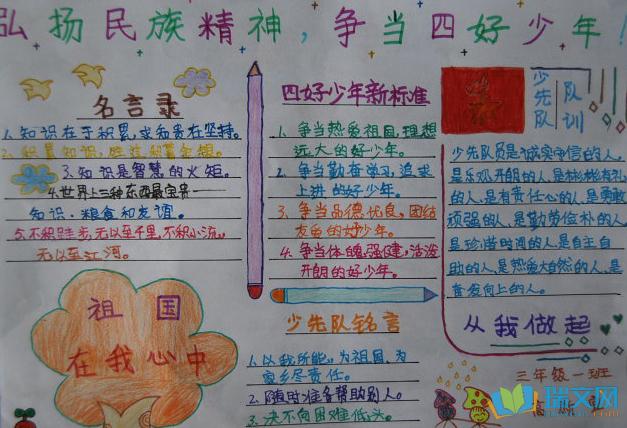 弘扬民族精神,争当四好少年!
名言录
1.知识在于积累,求知贵在坚持。
2.积累知识,胜过积蓄金银。
3.知识是智慧的火炬。
4.世界上三种东西最宝贵——
知识、粮食和友谊。
5.不积跬步,无以至千里,不积小流,
无以至江河。
祖国
在我心中
四好少年新标准
1.争当热爱祖国,理想
远大的好少年。
2.争当勤奋学习,追求
上进的好少年。
3.争当品德优良,团结
友爱的好少年。
4.争当体魄强健,活泼
开朗的好少年。
少先队铭言
1.以我所能,为祖国、为
家乡尽责任。
2.随时准备帮助别人。
3.决不向困难低头。
少先队
队训
少先队员是诚实守信的人,
是乐观开朗的人,是彬彬有礼
的人,是有责任心的人,是勇敢
顽强的人,是勤劳俭朴的人,
是珍惜时间的人,是自主自
助的人,是热爱大自然的人,是
奋发向上的人。
从我做起
三年级一班
瑞文网